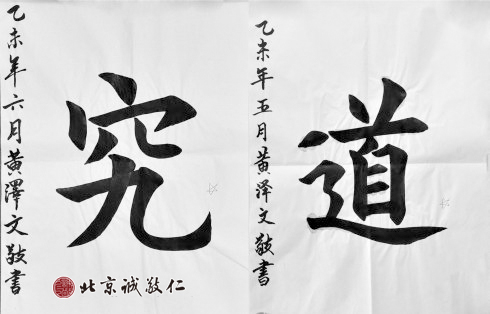 道
乙未年五月黄泽文敬书
究
乙未年六月黄澤文敬書
北京诚敬仁